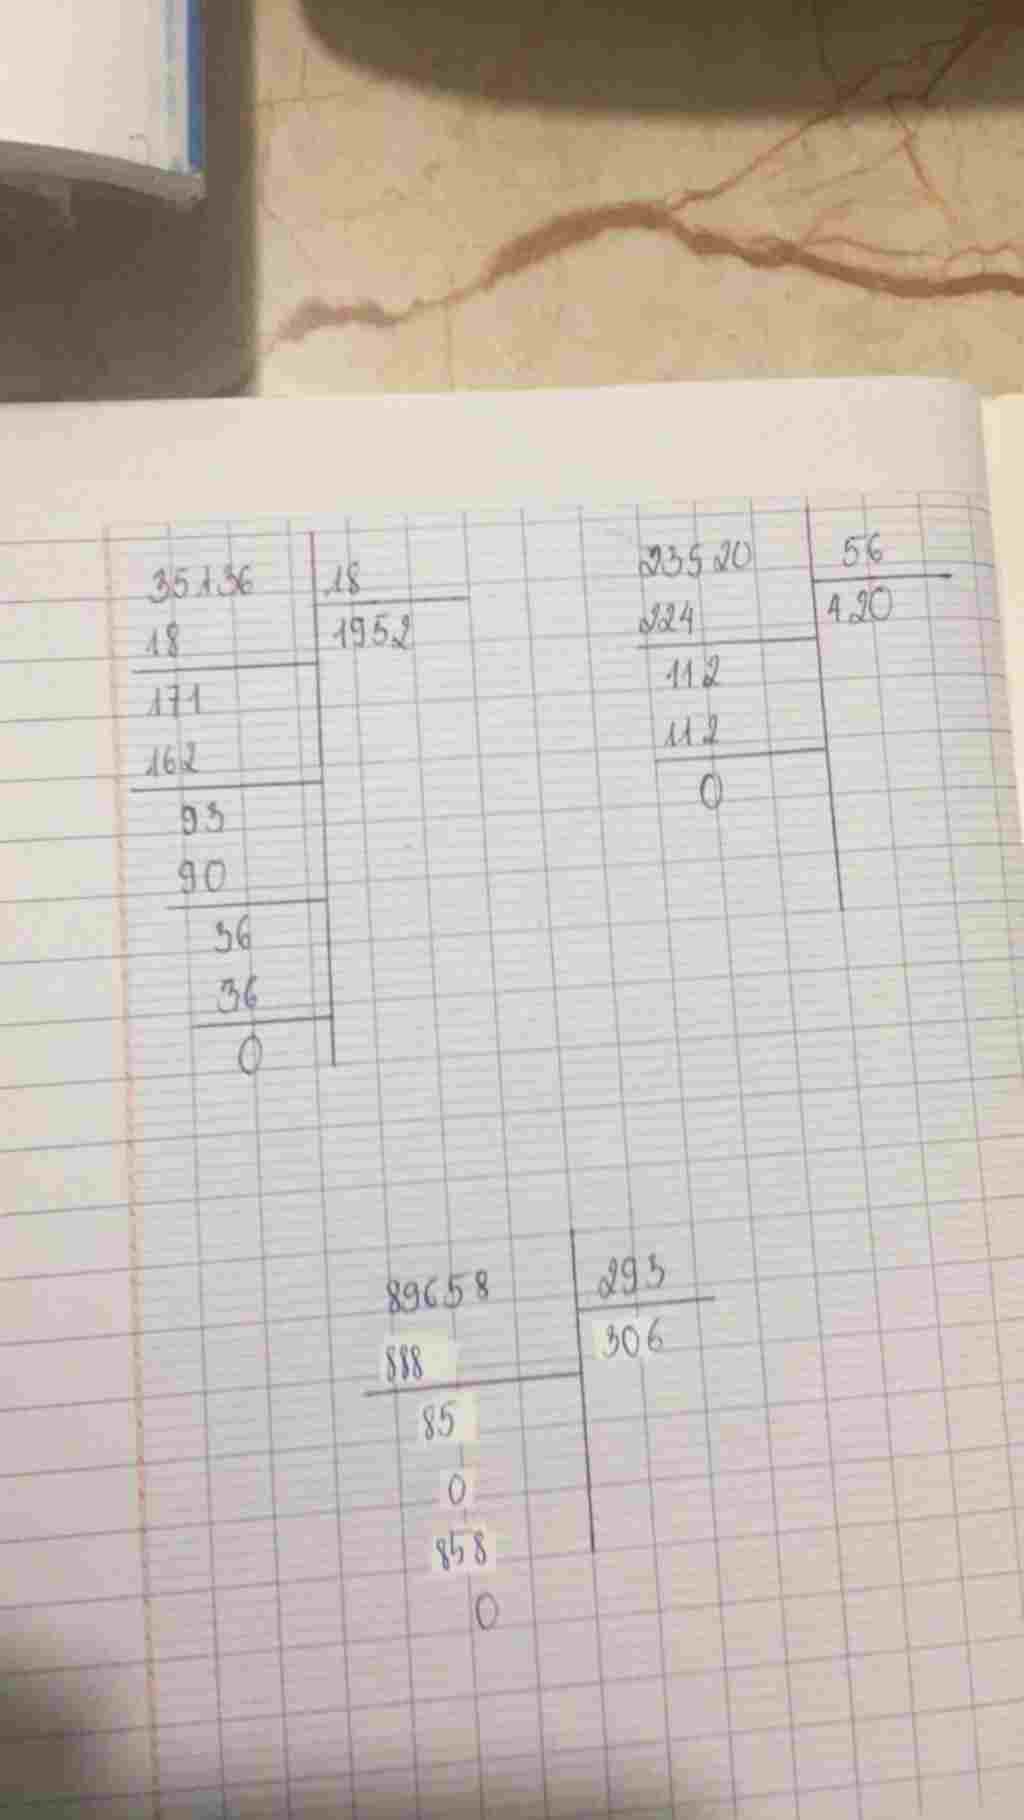 35136 18
18 1952
171
162
93
90
36
36
0
23520 56
224 420
112
112
0
89658 293
888 306
85
0
858
0